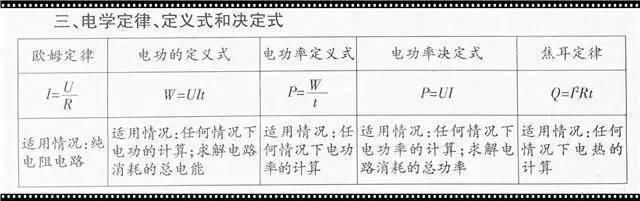 三、电学定律、定义式和决定式
欧姆定律 电功的定义式 电功率定义式 电功率决定式 焦耳定律
I=U/R W=UIt P=W/t P=UI Q=I²Rt
适用情况:纯
电阻电路
适用情况:任何情况下
电功的计算;求解电路
消耗的总电能
适用情况:任
何情况下电功
率的计算
适用情况:任何情况下
电功率的计算;求解电
路消耗的总功率
适用情况:任何
情况下电热的
计算